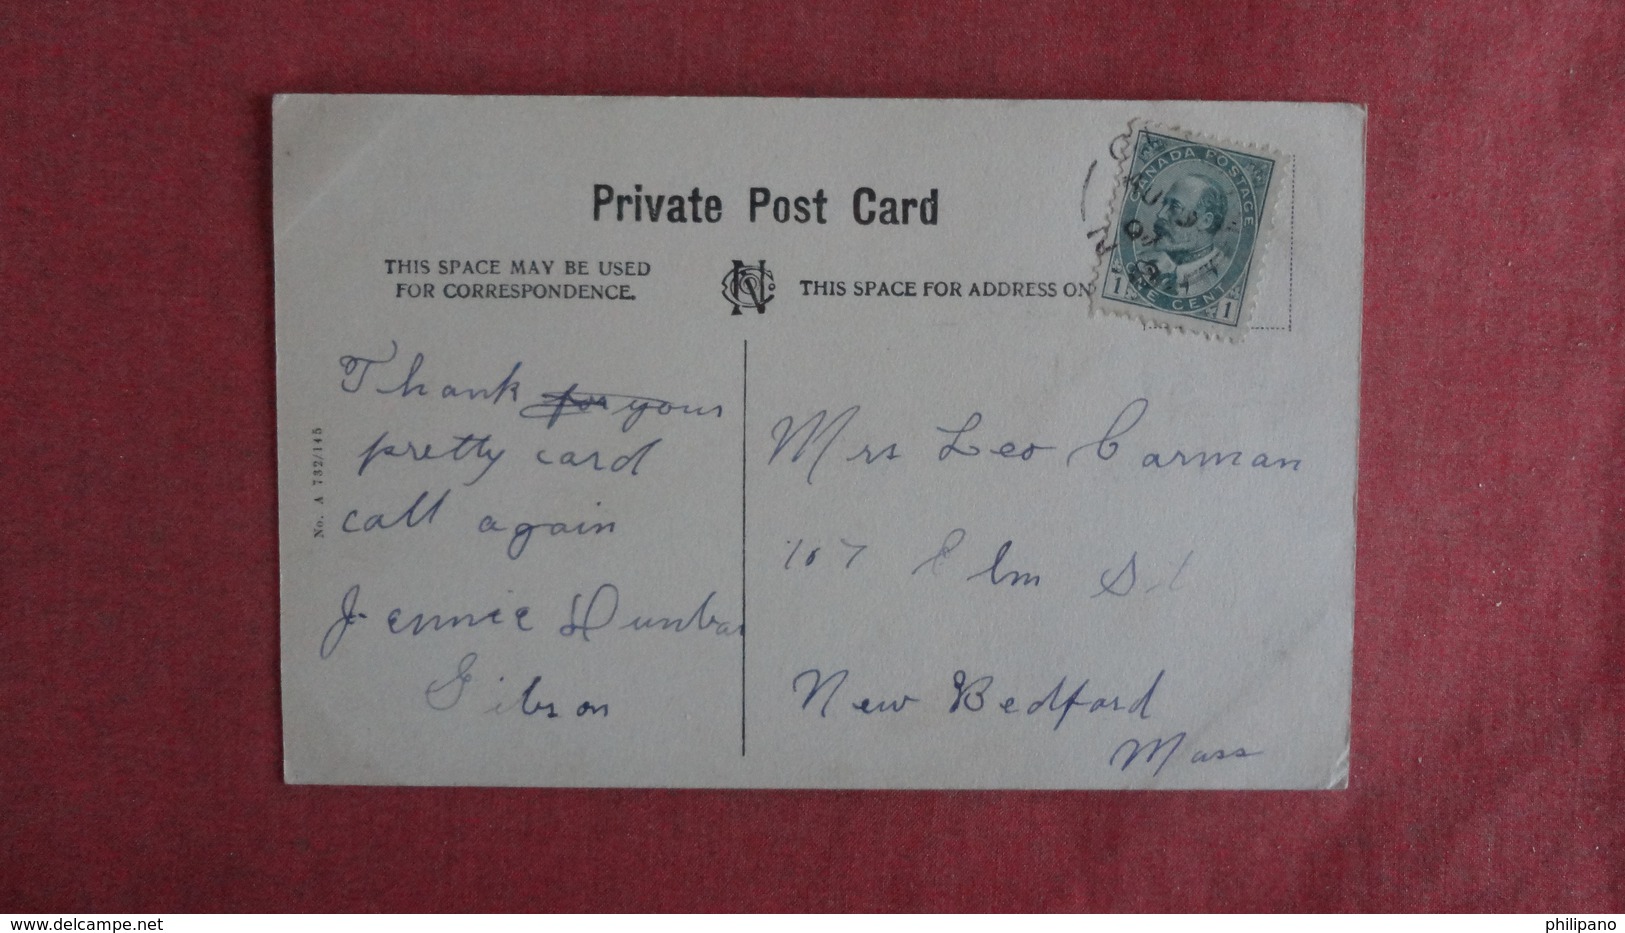 Private Post Card
THIS SPACE MAY BE USED
FOR CORRESPONDENCE.
THIS SPACE FOR ADDRESS ON
CANADA POSTAGE
1 ONE CENT 1
No. A 732/145
Thank for your
pretty card
call again
Jennie Dunbar
Gibson
Mrs Leo Carman
107 Elm St
New Bedford
Mass
www.delcampe.net
philipano